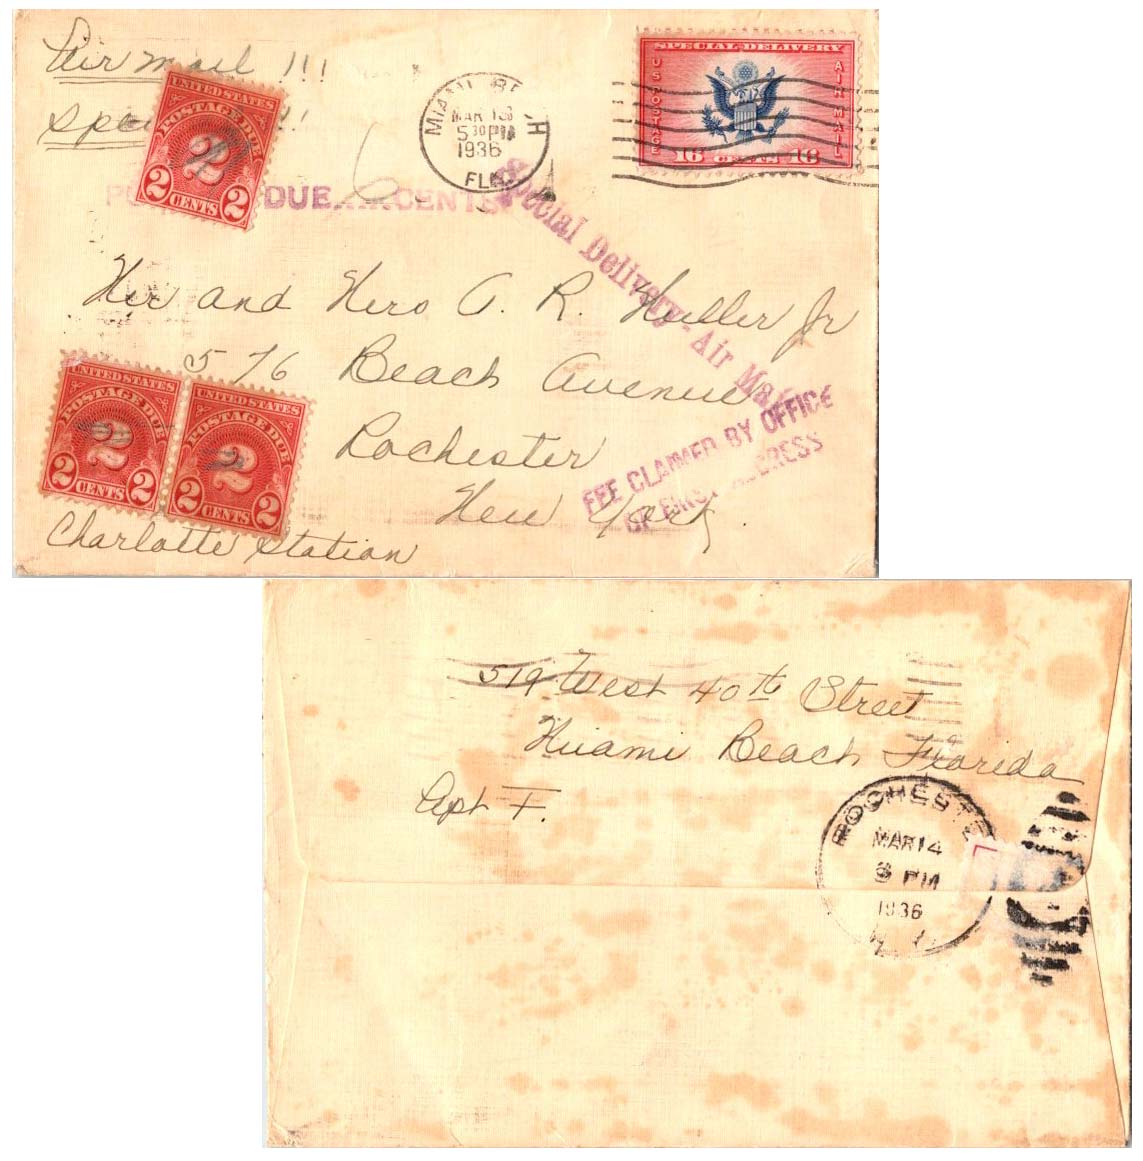 Air mail !!!
SPECIAL DELIVERY
U S POSTAGE
AIR MAIL
16 CENTS 16
MIAMI BEACH
MAR 13
5 30 PM
1936
FLA.
Spe !!
UNITED STATES
POSTAGE DUE
2
2 CENTS 2
DUE CENTS
6
Special Delivery - Air Mail
Mr and Mrs A. R. Muller Jr
576 Beach Avenue
Rochester
New York.
FEE CLAIMED BY OFFICE
OF FIRST ADDRESS
UNITED STATES
POSTAGE DUE
2
2 CENTS 2
UNITED STATES
POSTAGE DUE
2
2 CENTS 2
Charlotte Station
519 West 40th Street
Miami Beach Florida
Apt F.
ROCHESTE
MAR 14
PM
1936
N.Y.